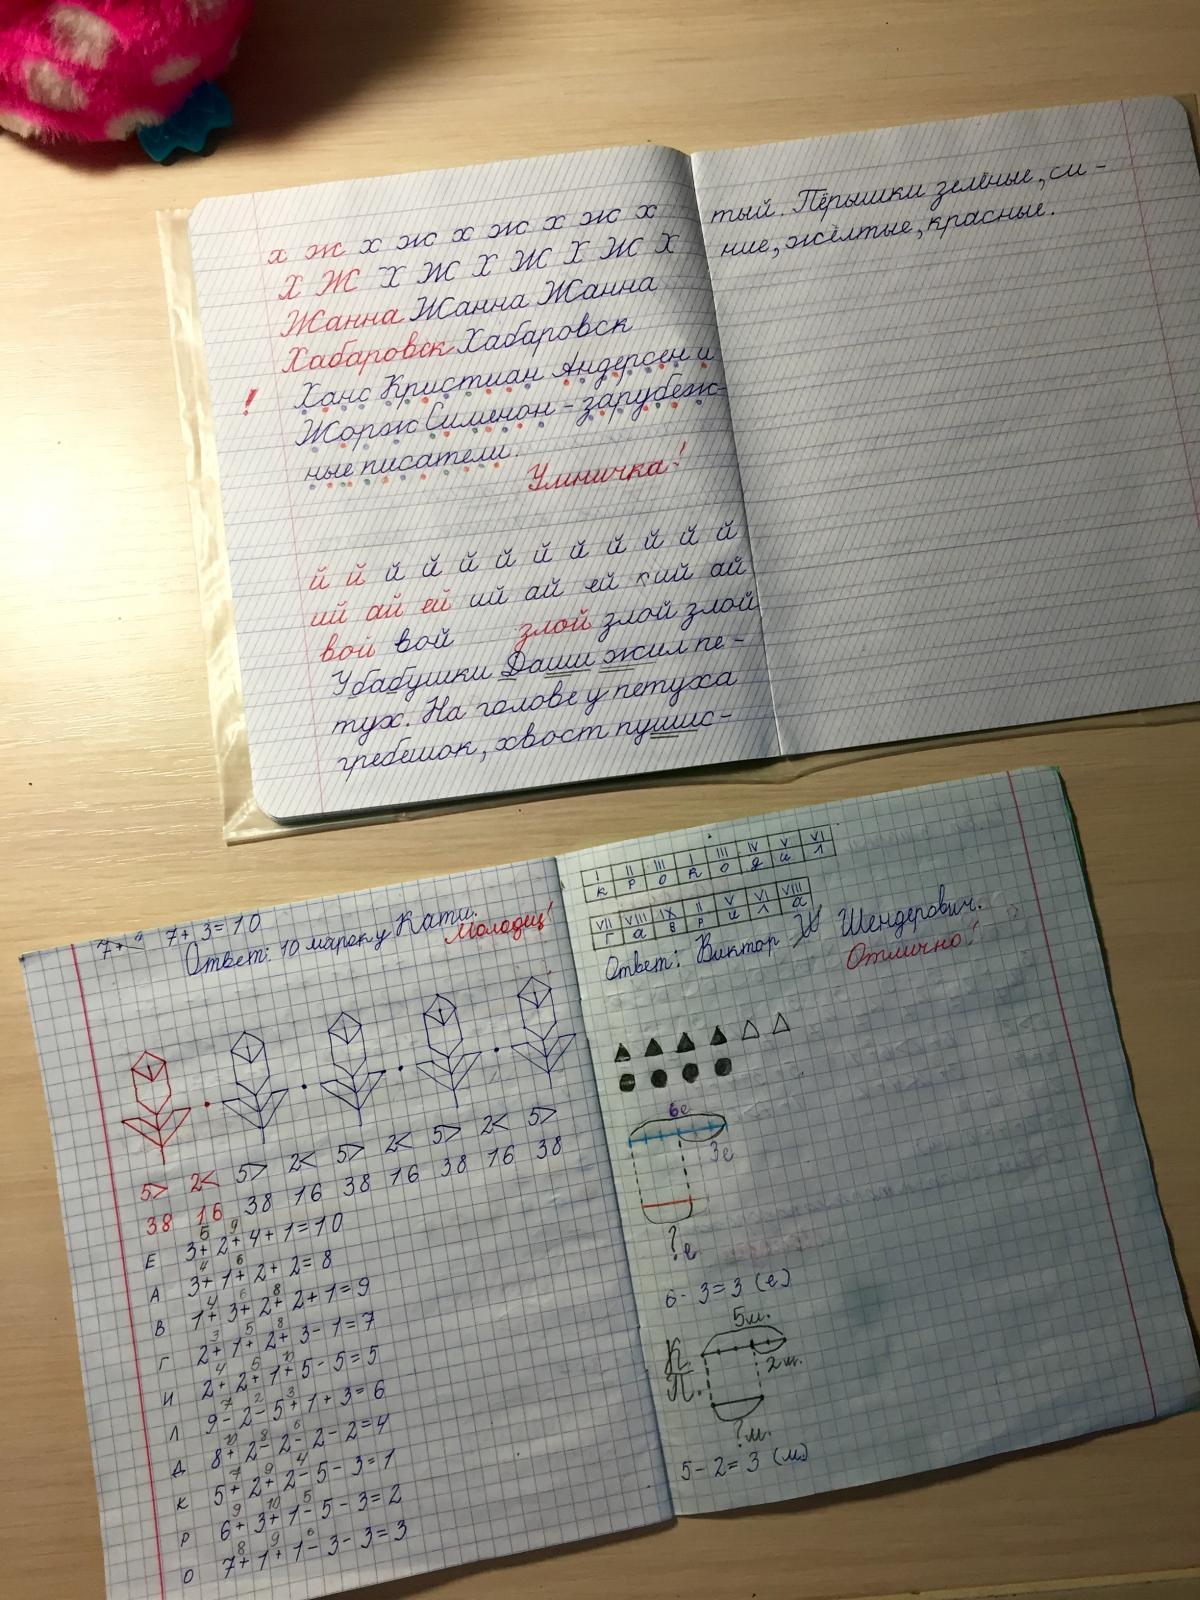 х ж х ж х ж х ж х
Х Ж Х Ж Х Ж Х Ж Х
Жанна Жанна Жанна
Хабаровск Хабаровск
! Ханс Кристиан Андерсен и
Жорж Сименон - зарубеж-
ные писатели.
Умничка!
й й й й й й й й й й й й
ий ай ей ий ай ей кий ай
вой вой злой злой злой
У бабушки Даши жил пе-
тух. На голове у петуха
гребешок, хвост пушис-
тый. Пёрышки зелёные, си-
ние, жёлтые, красные.
7+3=10
Ответ: 10 марок у Кати.
Молодец!
5> 2< 5> 2< 5> 2< 5> 2< 5>
38 16 38 16 38 16 38 16 38
5 9
Е 3+2+4+1=10
4 6
А 3+1+2+2=8
4 6 8
В 1+3+2+2+1=9
3 5 8
Г 2+1+2+3-1=7
4 5 10
И 2+2+1+5-5=5
7 2 3
Л 9-2-5+1+3=6
10 8 6
Д 8+2-2-2-2=4
7 9 4
К 5+2+2-5-3=1
9 10 5
Р 6+3+1-5-3=2
8 9 6
О 7+1+1-3-3=3
I II III I III IV V VI
К Р О К О Д И Л
VII VIII IX II V VI VIII
Г А В Р И Л А
Ответ: Виктор Шендерович.
Отлично!
6е
3е
?е
6-3=3 (е)
5м.
К.
2м.
П.
?м.
5-2=3 (м)